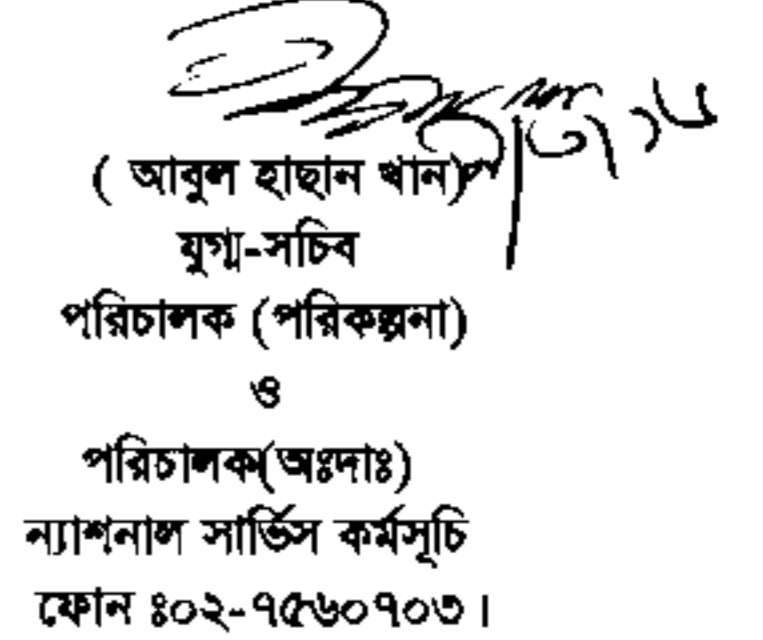 ( আবুল হাছান খান)
যুগ্ম-সচিব
পরিচালক (পরিকল্পনা)
ও
পরিচালক(অঃদাঃ)
ন্যাশনাল সার্ভিস কর্মসূচি
ফোন ঃ০২-৭৫৬০৭০৩।